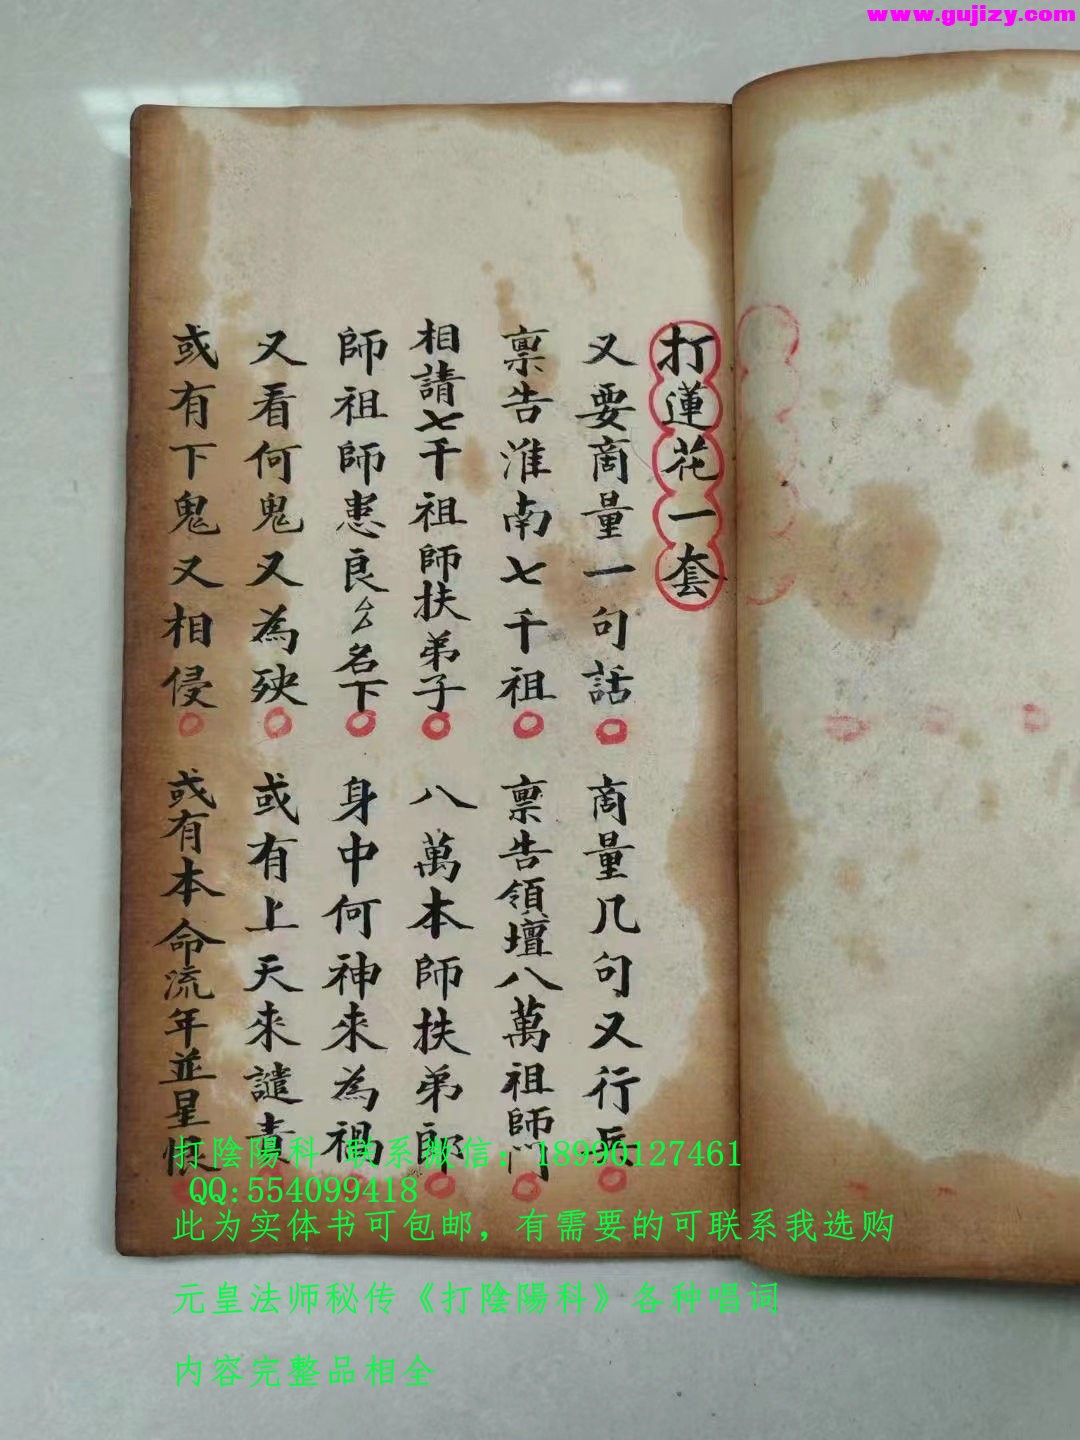 www.gujizy.com
打蓮花一套
又要啇量一句話 啇量几句又行兵
禀告淮南七千祖 禀告領壇八萬祖師門
相請七千祖師扶弟子 八萬本師扶弟郎
師祖師患良厶厶名下 身中何神來為禍
又看何鬼又為殃 或有上天來譴責
或有下鬼又相侵 或有本命流年並星
打陰陽科 联系微信：18990127461
QQ:554099418
此为实体书可包邮，有需要的可联系我选购
元皇法师秘传《打陰陽科》各种唱词
内容完整品相全